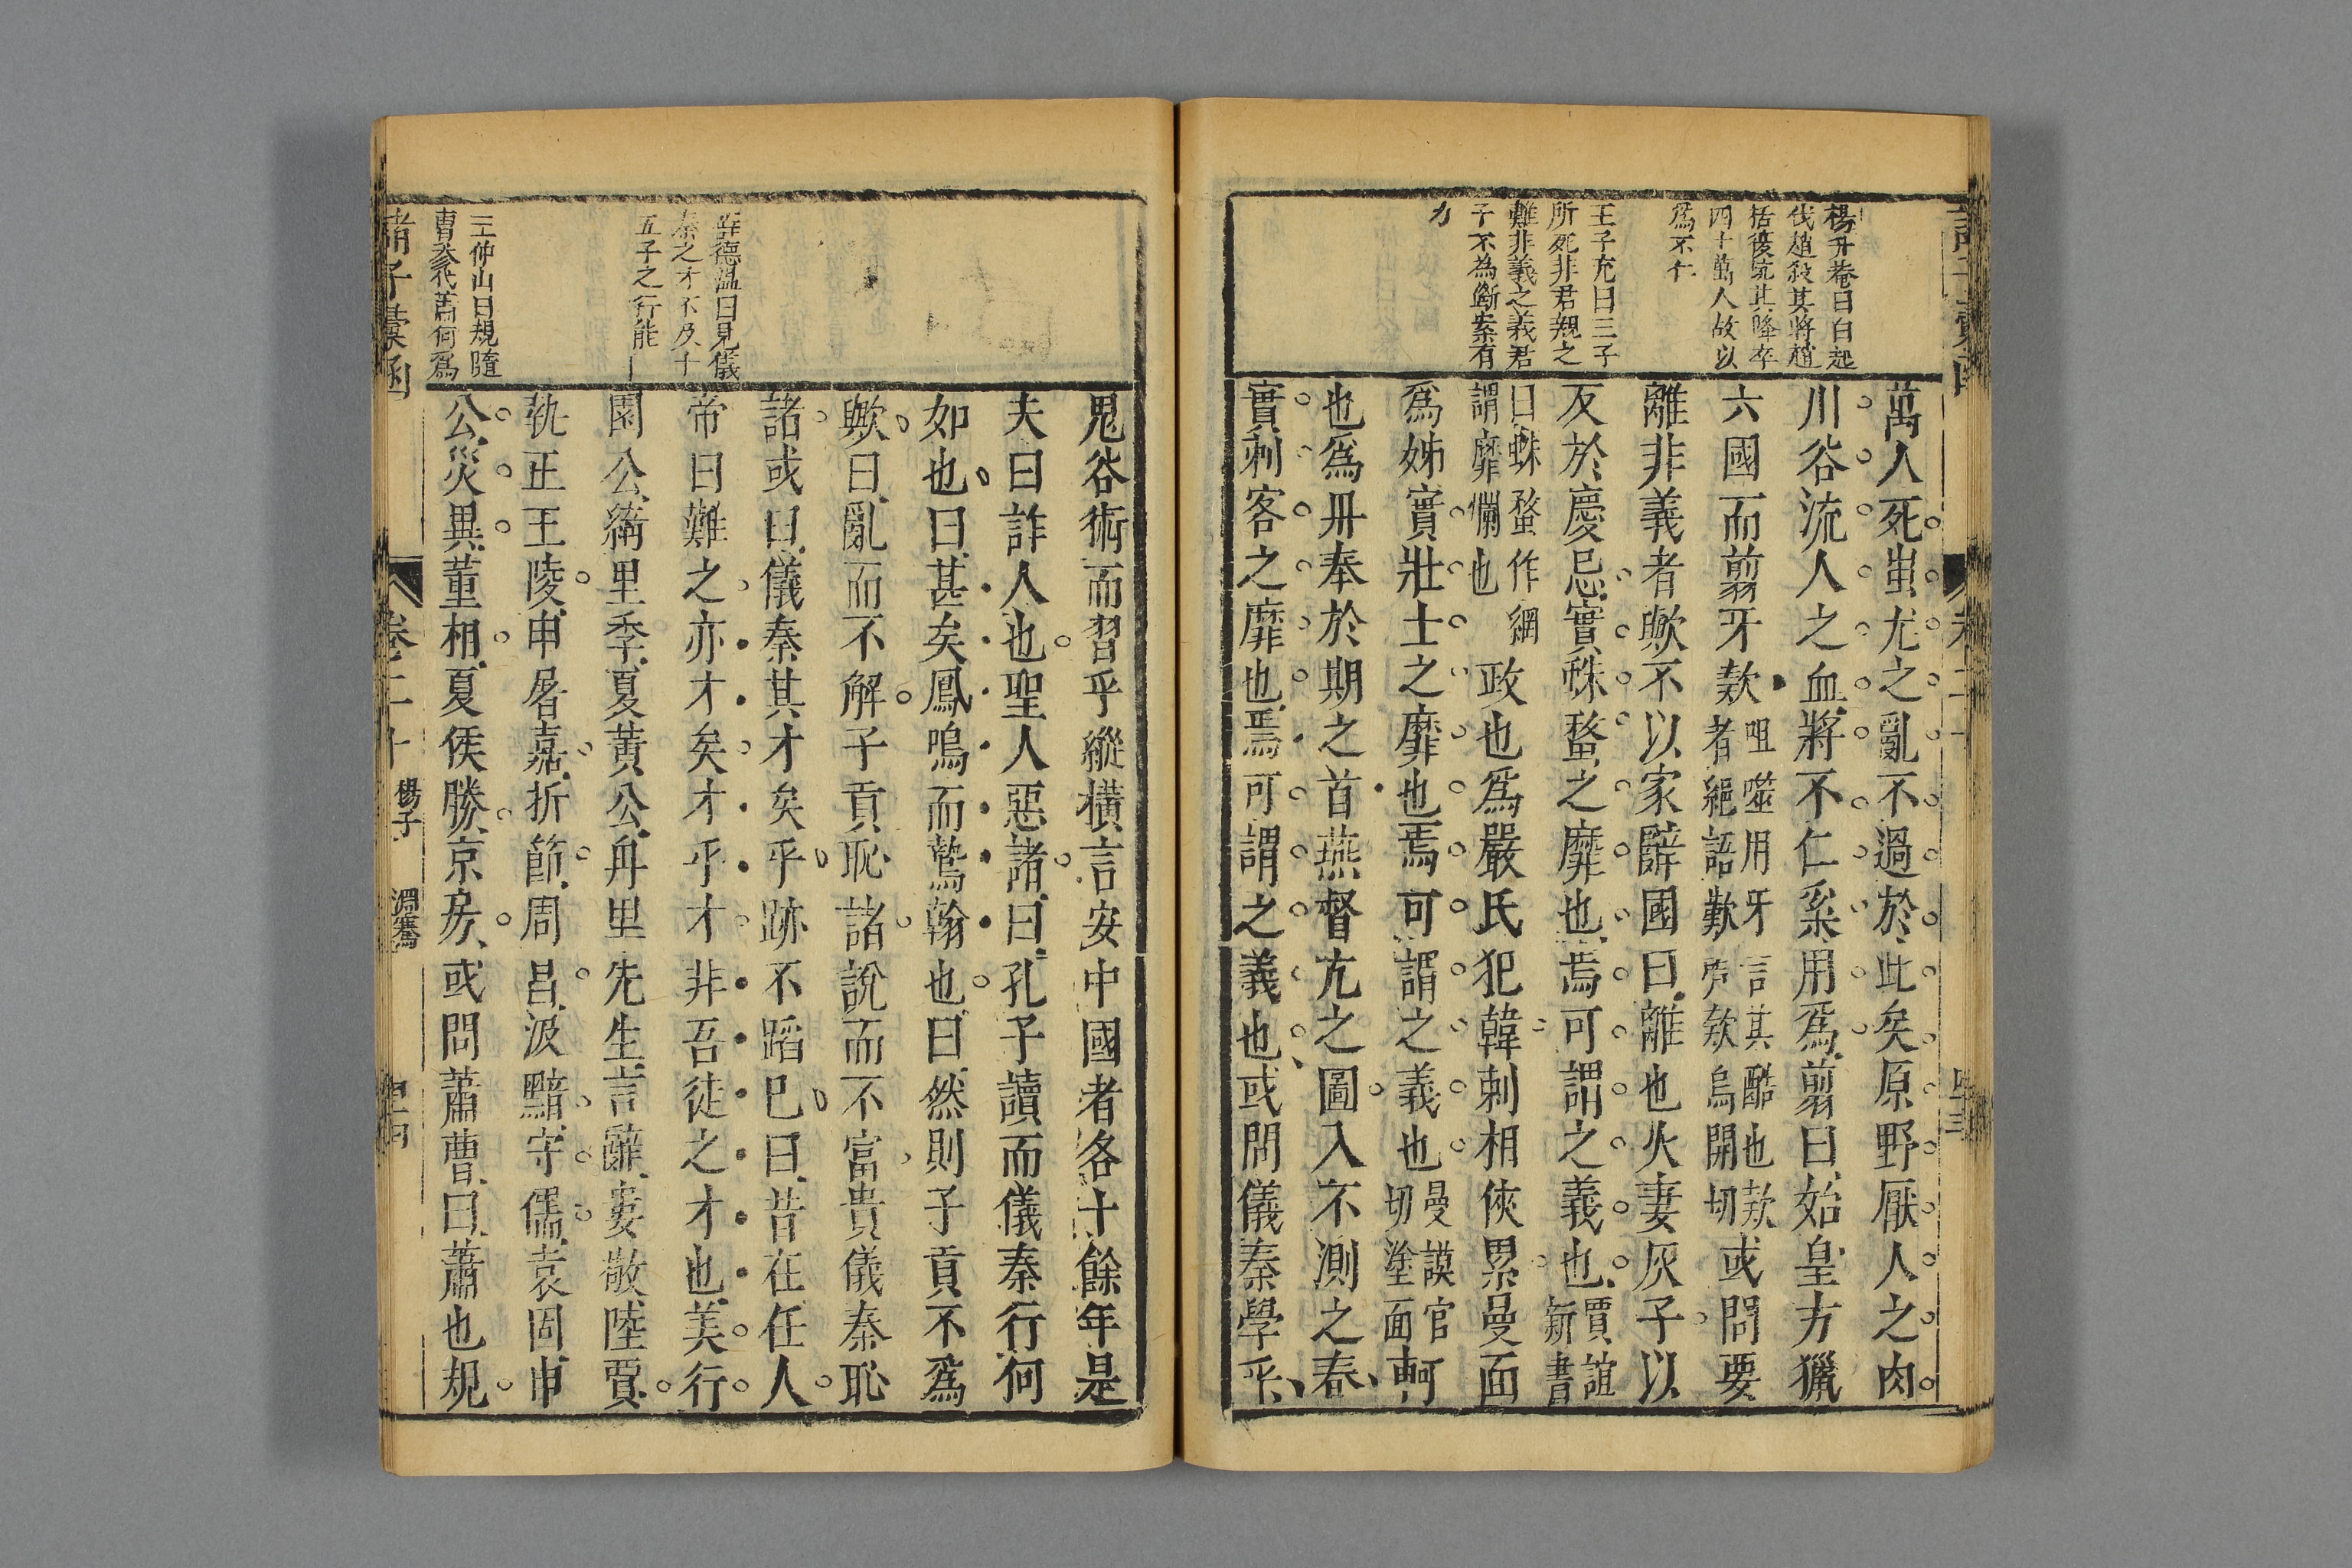 楊升菴曰白起
伐趙殺其將趙
括復坑其降卒
四十萬人故以
爲不仁
王子充曰三子
所死非君親之
難非義之義君
子不為斷案有
力
萬人死蚩尤之亂不過於此矣原野厭人之肉
川谷流人之血將不仁奚用爲翦曰始皇方獵
六國而翦牙欸
咀噬用牙言其酷也欸
者絕語歎聲欸烏開切
或問要
離非義者歟不以家辭國曰離也火妻灰子以
反於慶忌實蛛蝥之靡也焉可謂之義也
賈誼
新書
曰蛛蝥作網
謂靡爛也
政也爲嚴氏犯韓刺相俠累曼面
爲姊實壯士之靡也焉可謂之義也
曼謨官
切塗面
軻
也爲丹奉於期之首燕督亢之圖入不測之春
實刺客之靡也焉可謂之義也或問儀秦學乎
鬼谷術而習乎縱橫言安中國者各十餘年是
夫曰詐人也聖人惡諸曰孔子讀而儀秦行何
如也曰甚矣鳳鳴而鷙翰也曰然則子貢不爲
歟曰亂而不解子貢恥諸說而不富貴儀秦恥
諸或曰儀秦其才矣乎跡不蹈已曰昔在任人
帝曰難之亦才矣才乎才非吾徒之才也美行
園公綺里季夏黃公甪里先生言辭婁敬陸賈
執正王陵申屠嘉折節周昌汲黯守儒袁固申
公災異董相夏侯勝京房或問蕭曹曰蕭也規
許德溫曰見儀
秦之才不及十
五子之行能
王仲山曰規隨
曹參代蕭何爲
諸子彙函
卷二十
楊子
淵騫